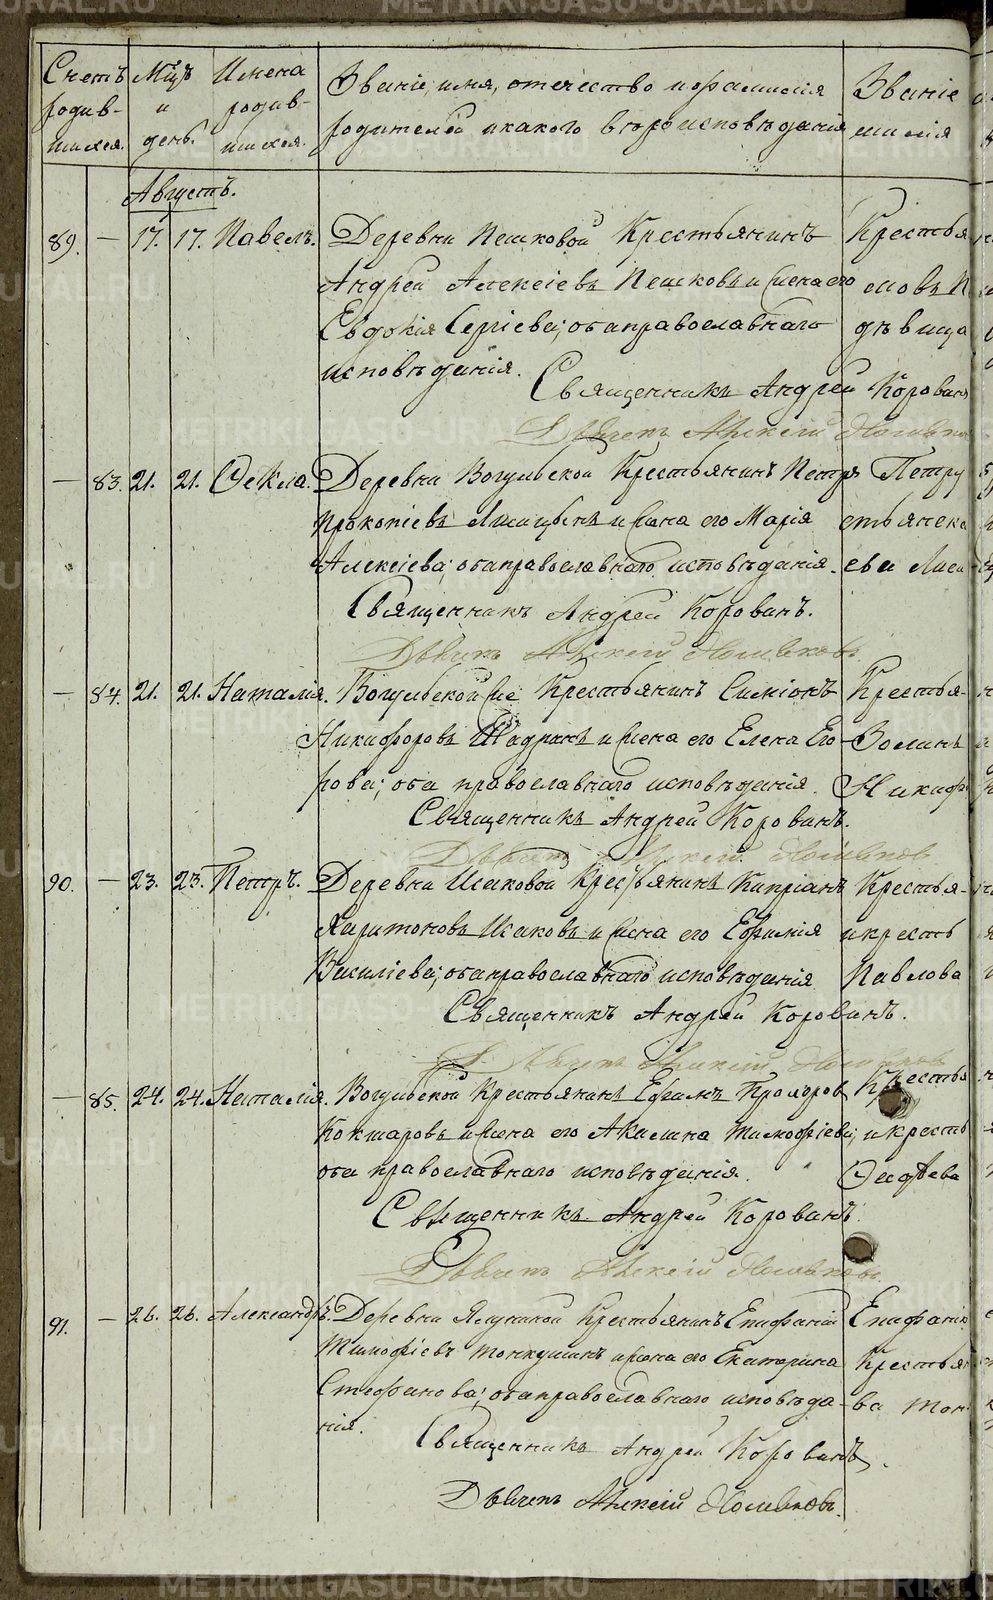 METRIKI.GASU-URAL.RU
Счетъ родив-шихся.
Мцъ и день.
Имена родив-шихся.
Званіе, имя, отчество и фамилія
родителей и какого вѣроисповѣданія
Званіе
милія
Августъ.
89. — 17. 17. Павелъ. Деревни Пешковой Крестьянинъ
Андрей Алексіевъ Пешковъ и жена его
Евдокія Сергіева; оба православнаго
исповѣданія.
Священникъ Андрей Корованъ
Дьячекъ Алексій
Крестья
мовъ П
дѣвица
— 83. 21. 21. Ѳекла. Деревни Вогульской Крестьянинъ Петръ
Прокопіевъ Лисицынъ и жена его Марія
Алексіева; оба православнаго исповѣданія.
Священникъ Андрей Корованъ.
Дьячекъ Алексій
Петру
стьянска
ева Лиси
— 84. 21. 21. Наталія. Вогульской же Крестьянинъ Симіонъ
Никифоровъ Шадринъ и жена его Елена Его-
рова; оба православнаго исповѣданія.
Священникъ Андрей Корованъ.
Дьячекъ Алексій
Крестья-
Никиф
90. — 23. 23. Петръ. Деревни Исаковой Крестьянинъ Кипріанъ
Харитоновъ Исаковъ и жена его Ефимія
Василіева; оба православнаго исповѣданія
Священникъ Андрей Корованъ.
Дьячекъ Алексій
Крестья-
и кресть
Павлова
— 85. 24. 24. Наталія. Вогульской Крестьянинъ Ефимъ Прохоров
Кокшаровъ и жена его Акилина Тимофіева;
оба православнаго исповѣданія.
Священникъ Андрей Корованъ.
Дьячекъ Алексій
Крестья
и кресть
91. — 26. 26. Александръ. Деревни Ялуниной Крестьянинъ Епифаній
Тимофіевъ Тонкушинъ и жена его Екатерина
Стефанова; оба православнаго исповѣда-
нія.
Священникъ Андрей Корованъ.
Дьячекъ Алексій
Епифанію
Крестьян
ва Тон